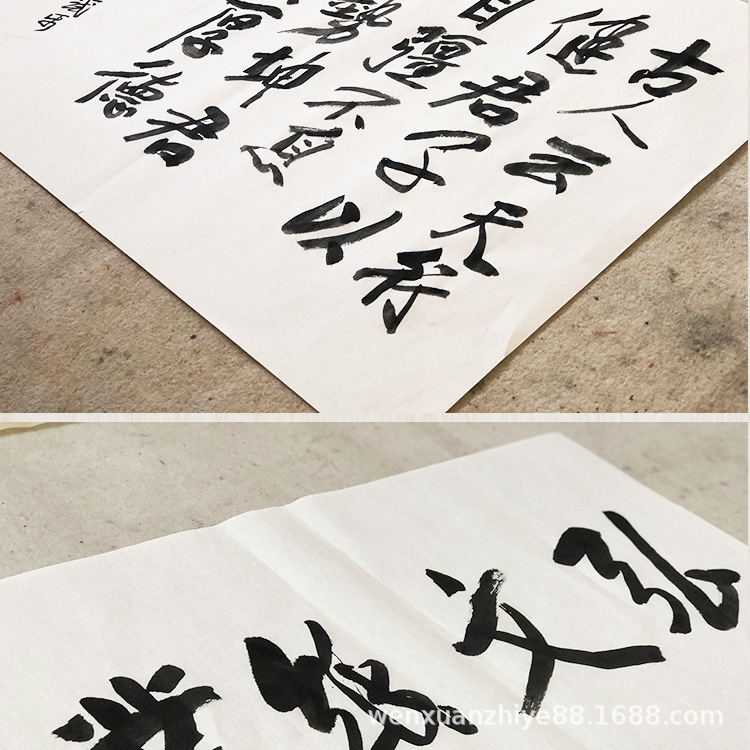 古人云天行
健君子以
自疆不息
勢坤君
厚德
弘文
wenxuanzhiye88.1688.com